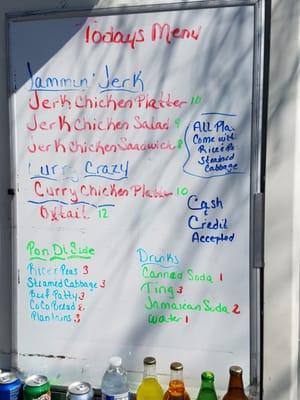 Todays Menu
Jammin' Jerk
Jerk Chicken Platter 10
Jerk Chicken Salad 9
Jerk Chicken Sandwich 8
Curry Crazy
Curry Chicken Platter 10
Oxtail 12
All Pla
Come with
Rice & Peas
Steamed
Cabbage
Cash
&
Credit
Accepted
Pon Di Side
Rice & Peas 3
Steamed Cabbage 3
Beef Patty 3
CoCo Bread 2
Plantains 3
Drinks
Canned Soda 1
Ting 3
Jamaican Soda 2
Water 1